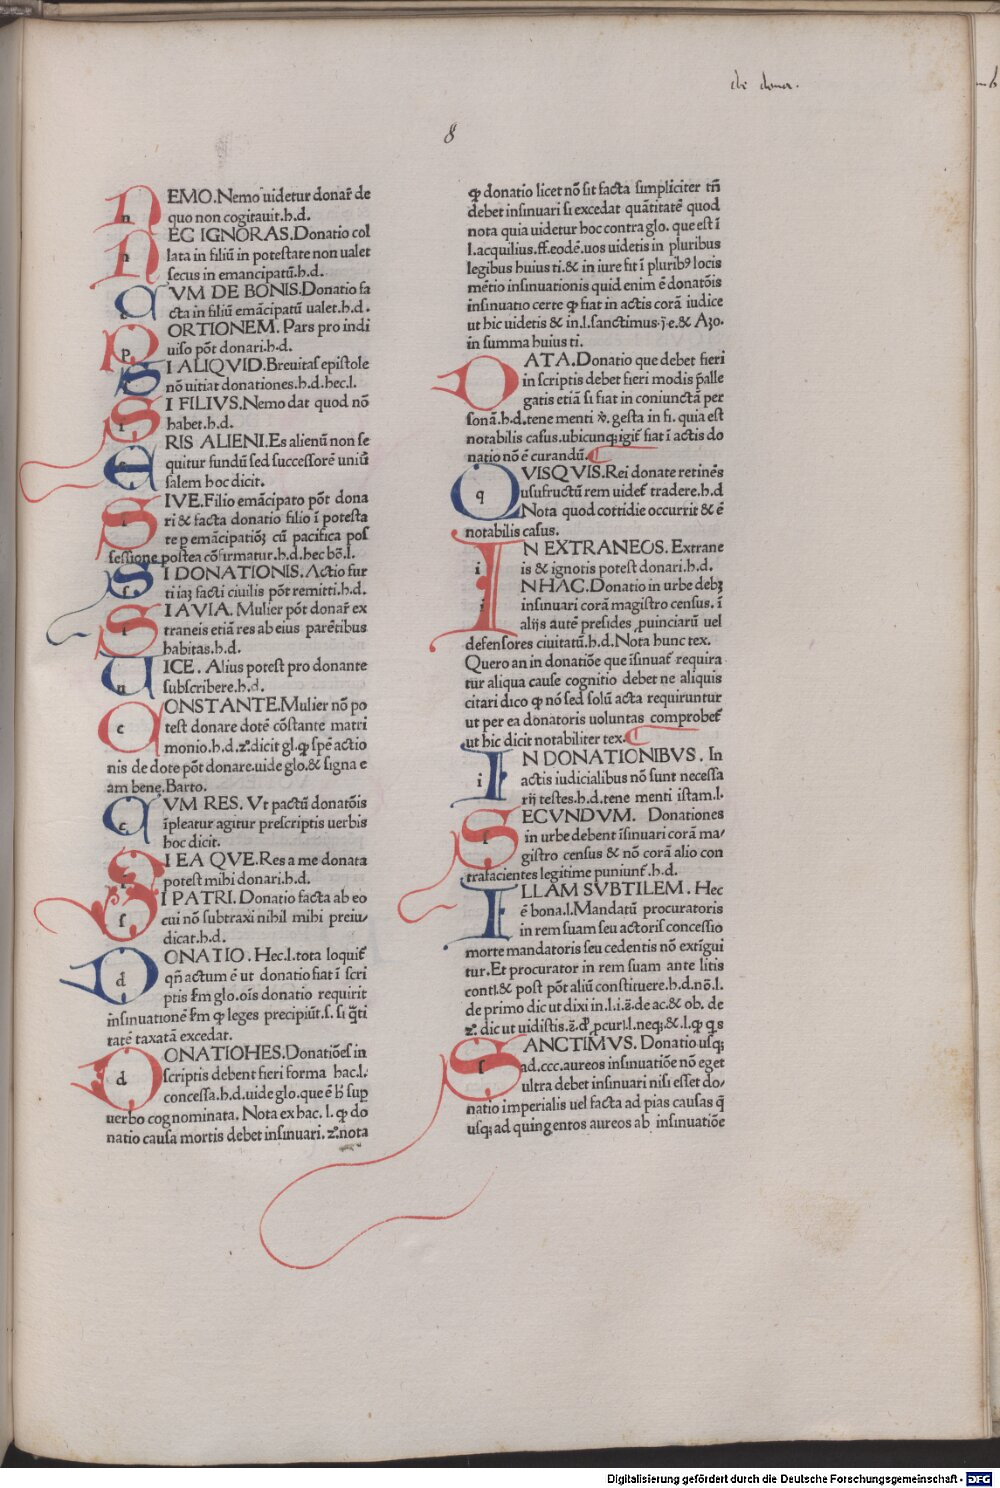 de dona.
8
NEMO. Nemo uidetur donar̃ de
quo non cogitauit.h.d.
NEC IGNORAS. Donatio col
lata in filiũ in potestate non ualet
secus in emancipatũ.h.d.
CVM DE BONIS. Donatio fa
cta in filiũ emãcipatũ ualet.h.d.
PORTIONEM. Pars pro indi
uiso põt donari.h.d.
SI ALIQVID. Breuitas epistole
nõ uitiat donationes.h.d.hec.l.
SI FILIVS. Nemo dat quod nõ
habet.h.d.
ERIS ALIENI. Es alienũ non se
quitur fundũ sed successorē uniũ
salem hoc dicit.
SIVE. Filio emãcipato põt dona
ri & facta donatio filio ĩ potesta
te ꝑ emãcipatioꝫ cũ pacifica pos
sessione postea cõfirmatur.h.d.hec bõ.l.
SI DONATIONIS. Actio fur
ti iaꝫ facti ciuilis põt remitti.h.d.
SI AVIA. Mulier põt donar̃ ex
traneis etiã res ab eius parẽtibus
habitas.h.d.
VICE. Alius potest pro donante
subscribere.h.d.
CONSTANTE. Mulier nõ po
test donare dotē cõstante matri
monio.h.d.z°.dicit gl.ꝙ spē actio
nis de dote põt donare.uide glo.& signa e
am bene. Barto.
CVM RES. Vt pactũ donatõis
ĩpleatur agitur prescriptis uerbis
hoc dicit.
SI EA QVE. Res a me donata
potest mihi donari.h.d.
SI PATRI. Donatio facta ab eo
cui nõ subtraxi nihil mihi preiu/
dicat.h.d.
DONATIO. Hec.l.tota loquit̃
qñ actum ē ut donatio fiat ĩ scri
ptis ẜm glo.oĩs donatio requirit
insinuationē ẜm ꝙ leges precipiũt.s. si q̃ti
tatē taxatã excedat.
DONATIOHES. Donatiões in
scriptis debent fieri forma hac.l.
concessa.h.d.uide glo.que ē h̃ suꝑ
uerbo cognominata. Nota ex hac. l. ꝙ do
natio causa mortis debet insinuari. z°.nota
ꝙ donatio licet nõ sit facta simpliciter tñ
debet insinuari si excedat quãtitatē quod
nota quia uidetur hoc contra glo. que est ĩ
l.acquilius.ff.eodē.uos uidetis in pluribus
legibus huius ti.& in iure fit ĩ pluribꝰ locis
mẽtio insinuationis quid enim ē donatõis
insinuatio certe ꝙ fiat in actis corã iudice
ut hic uidetis & in.l.sanctimus.j.e.& Azo.
in summa huius ti.
DATA. Donatio que debet fieri
in scriptis debet fieri modis p̃alle
gatis etiã si fiat in coniunctã per
sonã.h.d.tene menti ꝟ. gesta in fi. quia est
notabilis casus.ubicunqꝫ igit̃ fiat ĩ actis do
natio nõ ē curandũ.
QVISQVIS. Rei donate retinẽs
usufructũ rem uidet̃ tradere.h.d
Nota quod cottidie occurrit & ē
notabilis casus.
IN EXTRANEOS. Extrane
is & ignotis potest donari.h.d.
IN HAC. Donatio in urbe debꝫ
insinuari corã magistro census. ĩ
alijs autē presides ꝓuinciarũ uel
defensores ciuitatũ.h.d. Nota hunc tex.
Quero an in donatiõe que ĩsinuat̃ requira
tur aliqua cause cognitio debet ne aliquis
citari dico ꝙ nõ sed solũ acta requiruntur
ut per ea donatoris uoluntas comprobet̃
ut hic dicit notabiliter tex.
IN DONATIONIBVS. In
actis iudicialibus nõ sunt necessa
rij testes.h.d.tene menti istam.l.
SECVNDVM. Donationes
in urbe debent ĩsinuari corã ma/
gistro census & nõ corã alio con
trafacientes legitime puniunt̃.h.d.
ILLAM SVBTILEM. Hec
ē bona.l. Mandatũ procuratoris
in rem suam seu actoris concessio
morte mandatoris seu cedentis nõ extĩgui
tur. Et procurator in rem suam ante litis
contļ.& post põt aliũ constituere.h.d.nõ.l.
de primo dic ut dixi in.l.i.z̃.de ac.& ob. de
z°. dic ut uidistis.z̃.d̃ ꝓcurļ.l.neqꝫ.&.l.ꝙ q̃s
SANCTIMVS. Donatio usqꝫ
ad.ccc.aureos insinuatiõe nõ eget
ultra debet insinuari nisi esset do/
natio imperialis uel facta ad pias causas q̃
usqꝫ ad quingentos aureos ab insinuatiõe
Digitalisierung gefördert durch die Deutsche Forschungsgemeinschaft - DFG